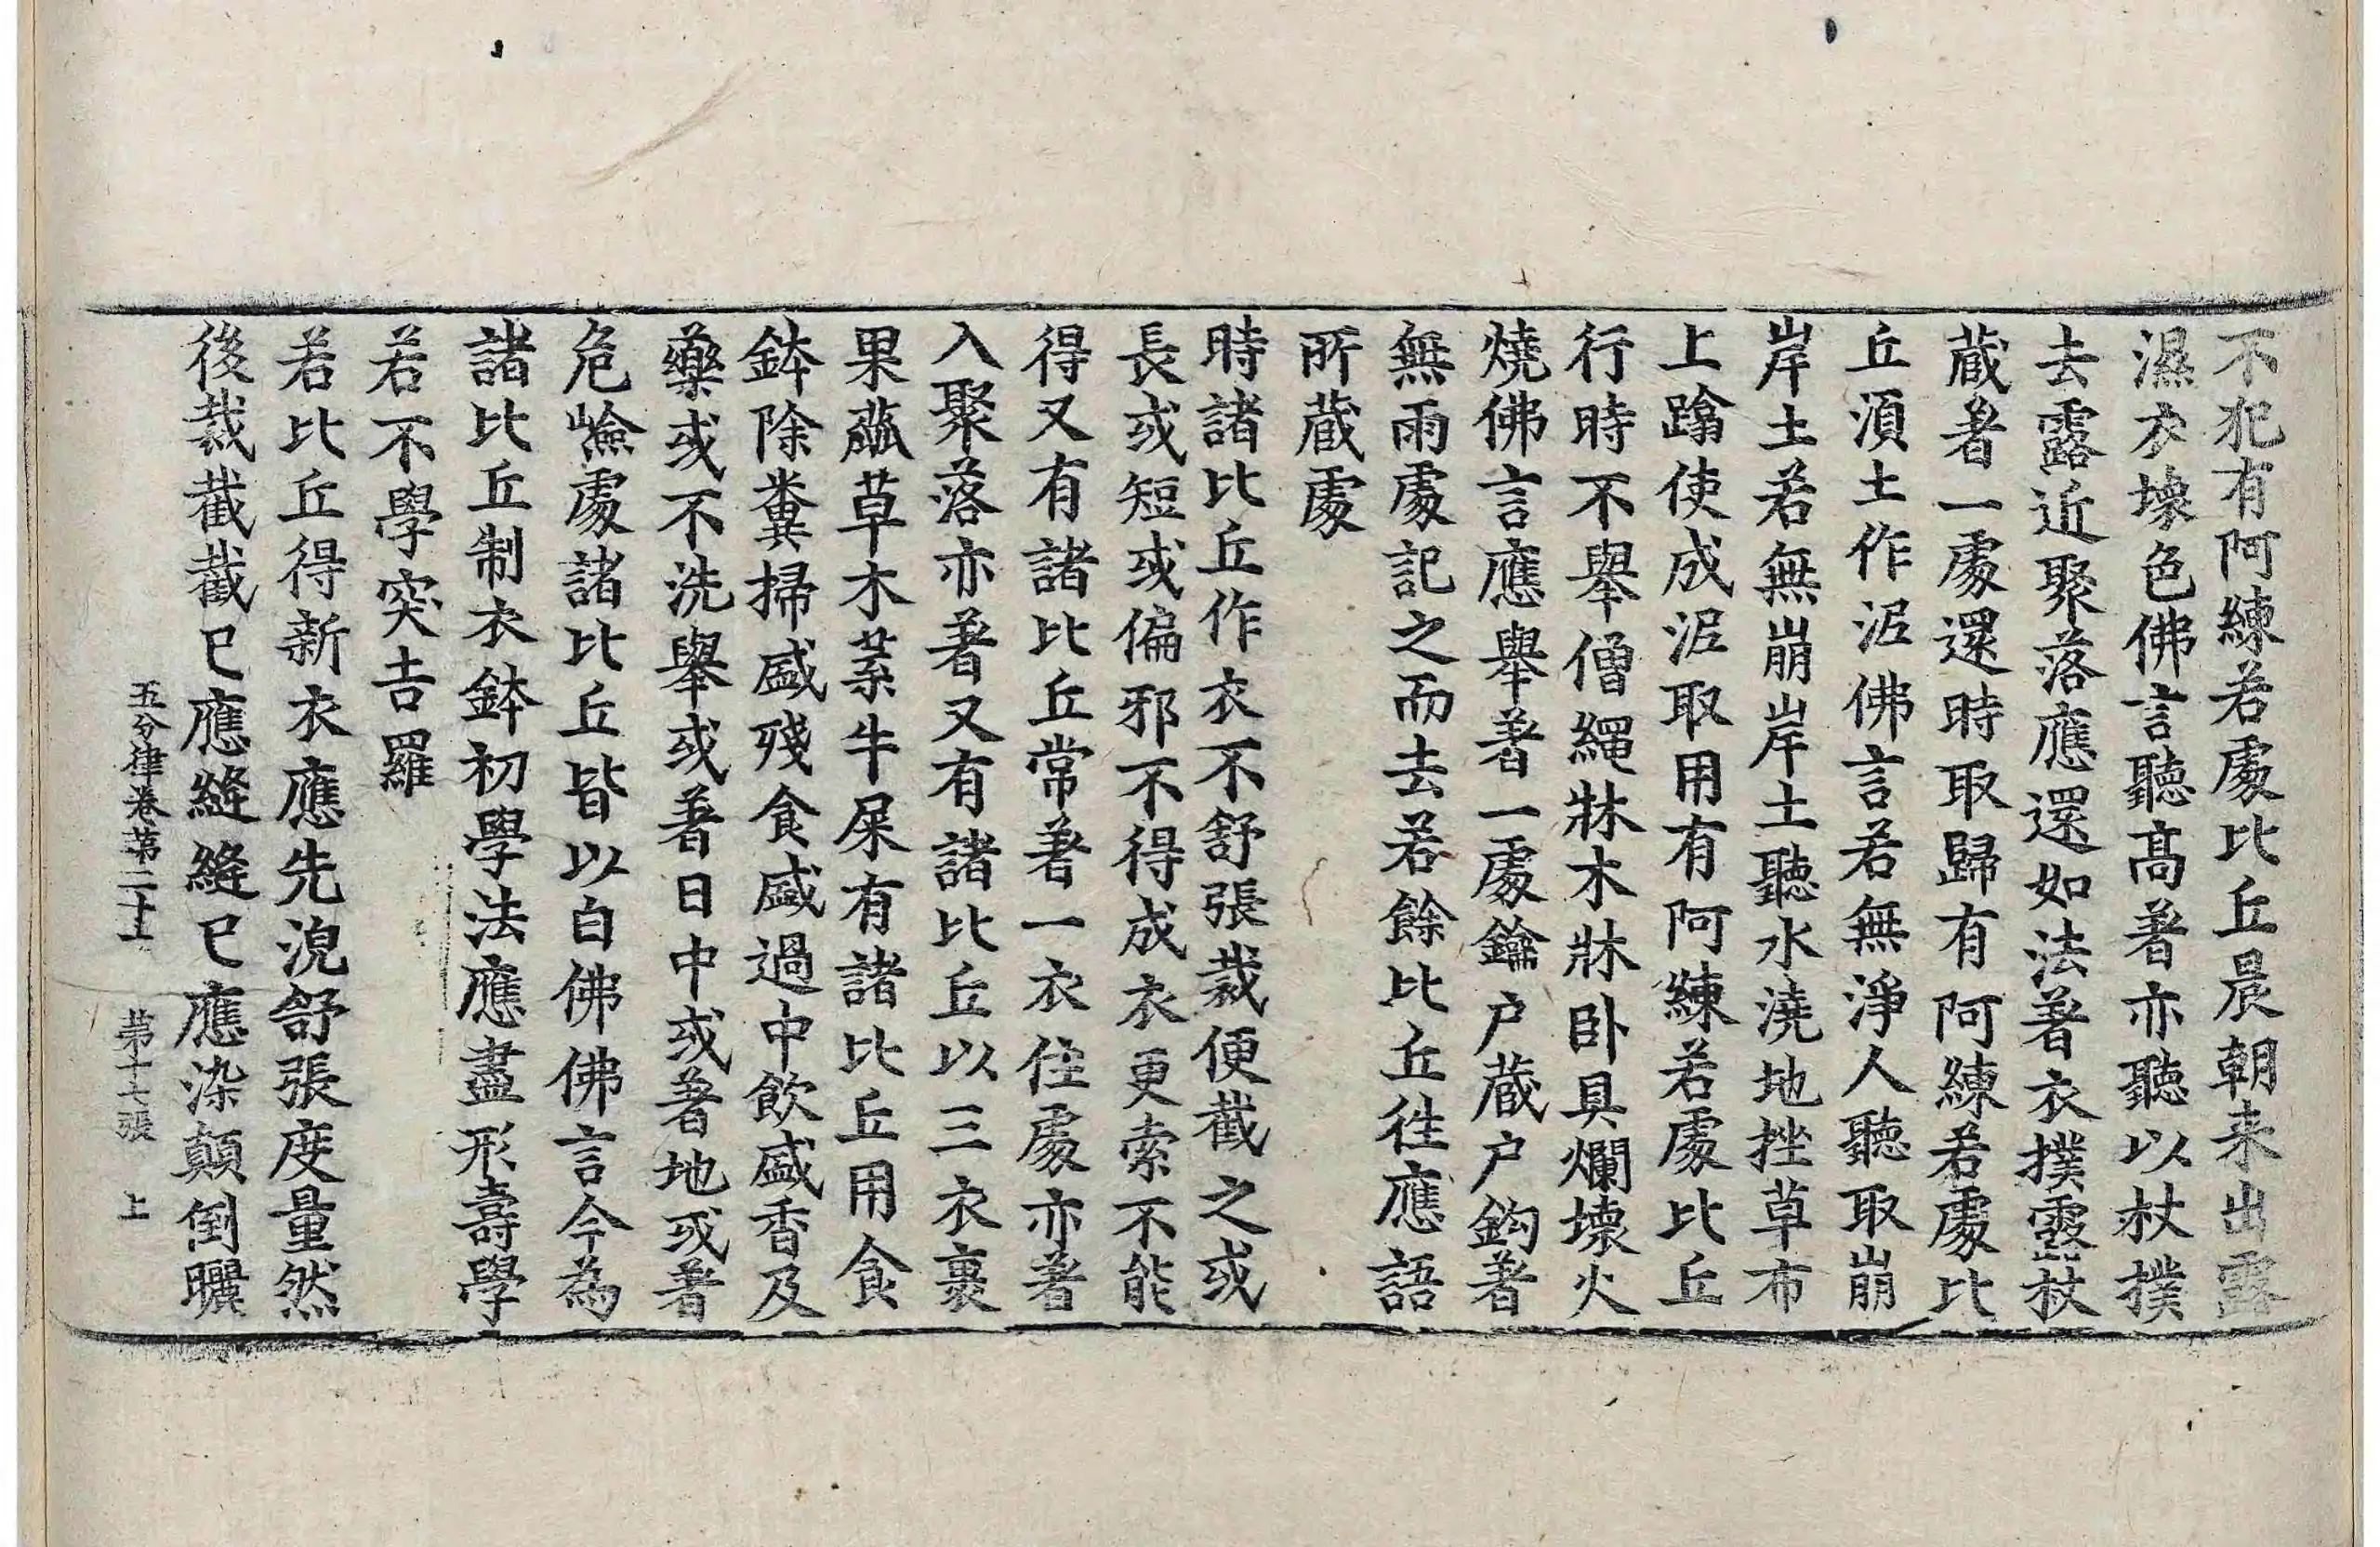 不犯有阿練若處比丘晨朝来出露
濕衣壞色佛言聽髙著亦聽以杖撲
去露近聚落應還如法著衣撲露杖
蔵著一處還時取歸有阿練若處比
丘湏土作泥佛言若無淨人聽取崩
岸土若無崩岸土聽水澆地挫草布
上蹹使成泥取用有阿練若處比丘
行時不舉僧繩牀木牀卧具爛壞火
燒佛言應舉著一處鑰户蔵户鈎著
無雨處記之而去若餘比丘徃應語
所蔵處
時諸比丘作衣不舒張裁便截之或
長或短或偏邪不得成衣更索不能
得又有諸比丘常著一衣住處亦著
入聚落亦著又有諸比丘以三衣裹
果蓏草木葉牛屎有諸比丘用食
鉢除糞掃盛殘食盛過中飲盛香及
藥或不洗舉或著日中或著地或著
危嶮處諸比丘皆以白佛佛言今為
諸比丘制衣鉢初學法應盡形壽學
若不學突吉羅
若比丘得新衣應先浣舒張度量然
後裁截截已應縫縫已應染顛倒曬
五分律卷苐二十 苐十七張 上